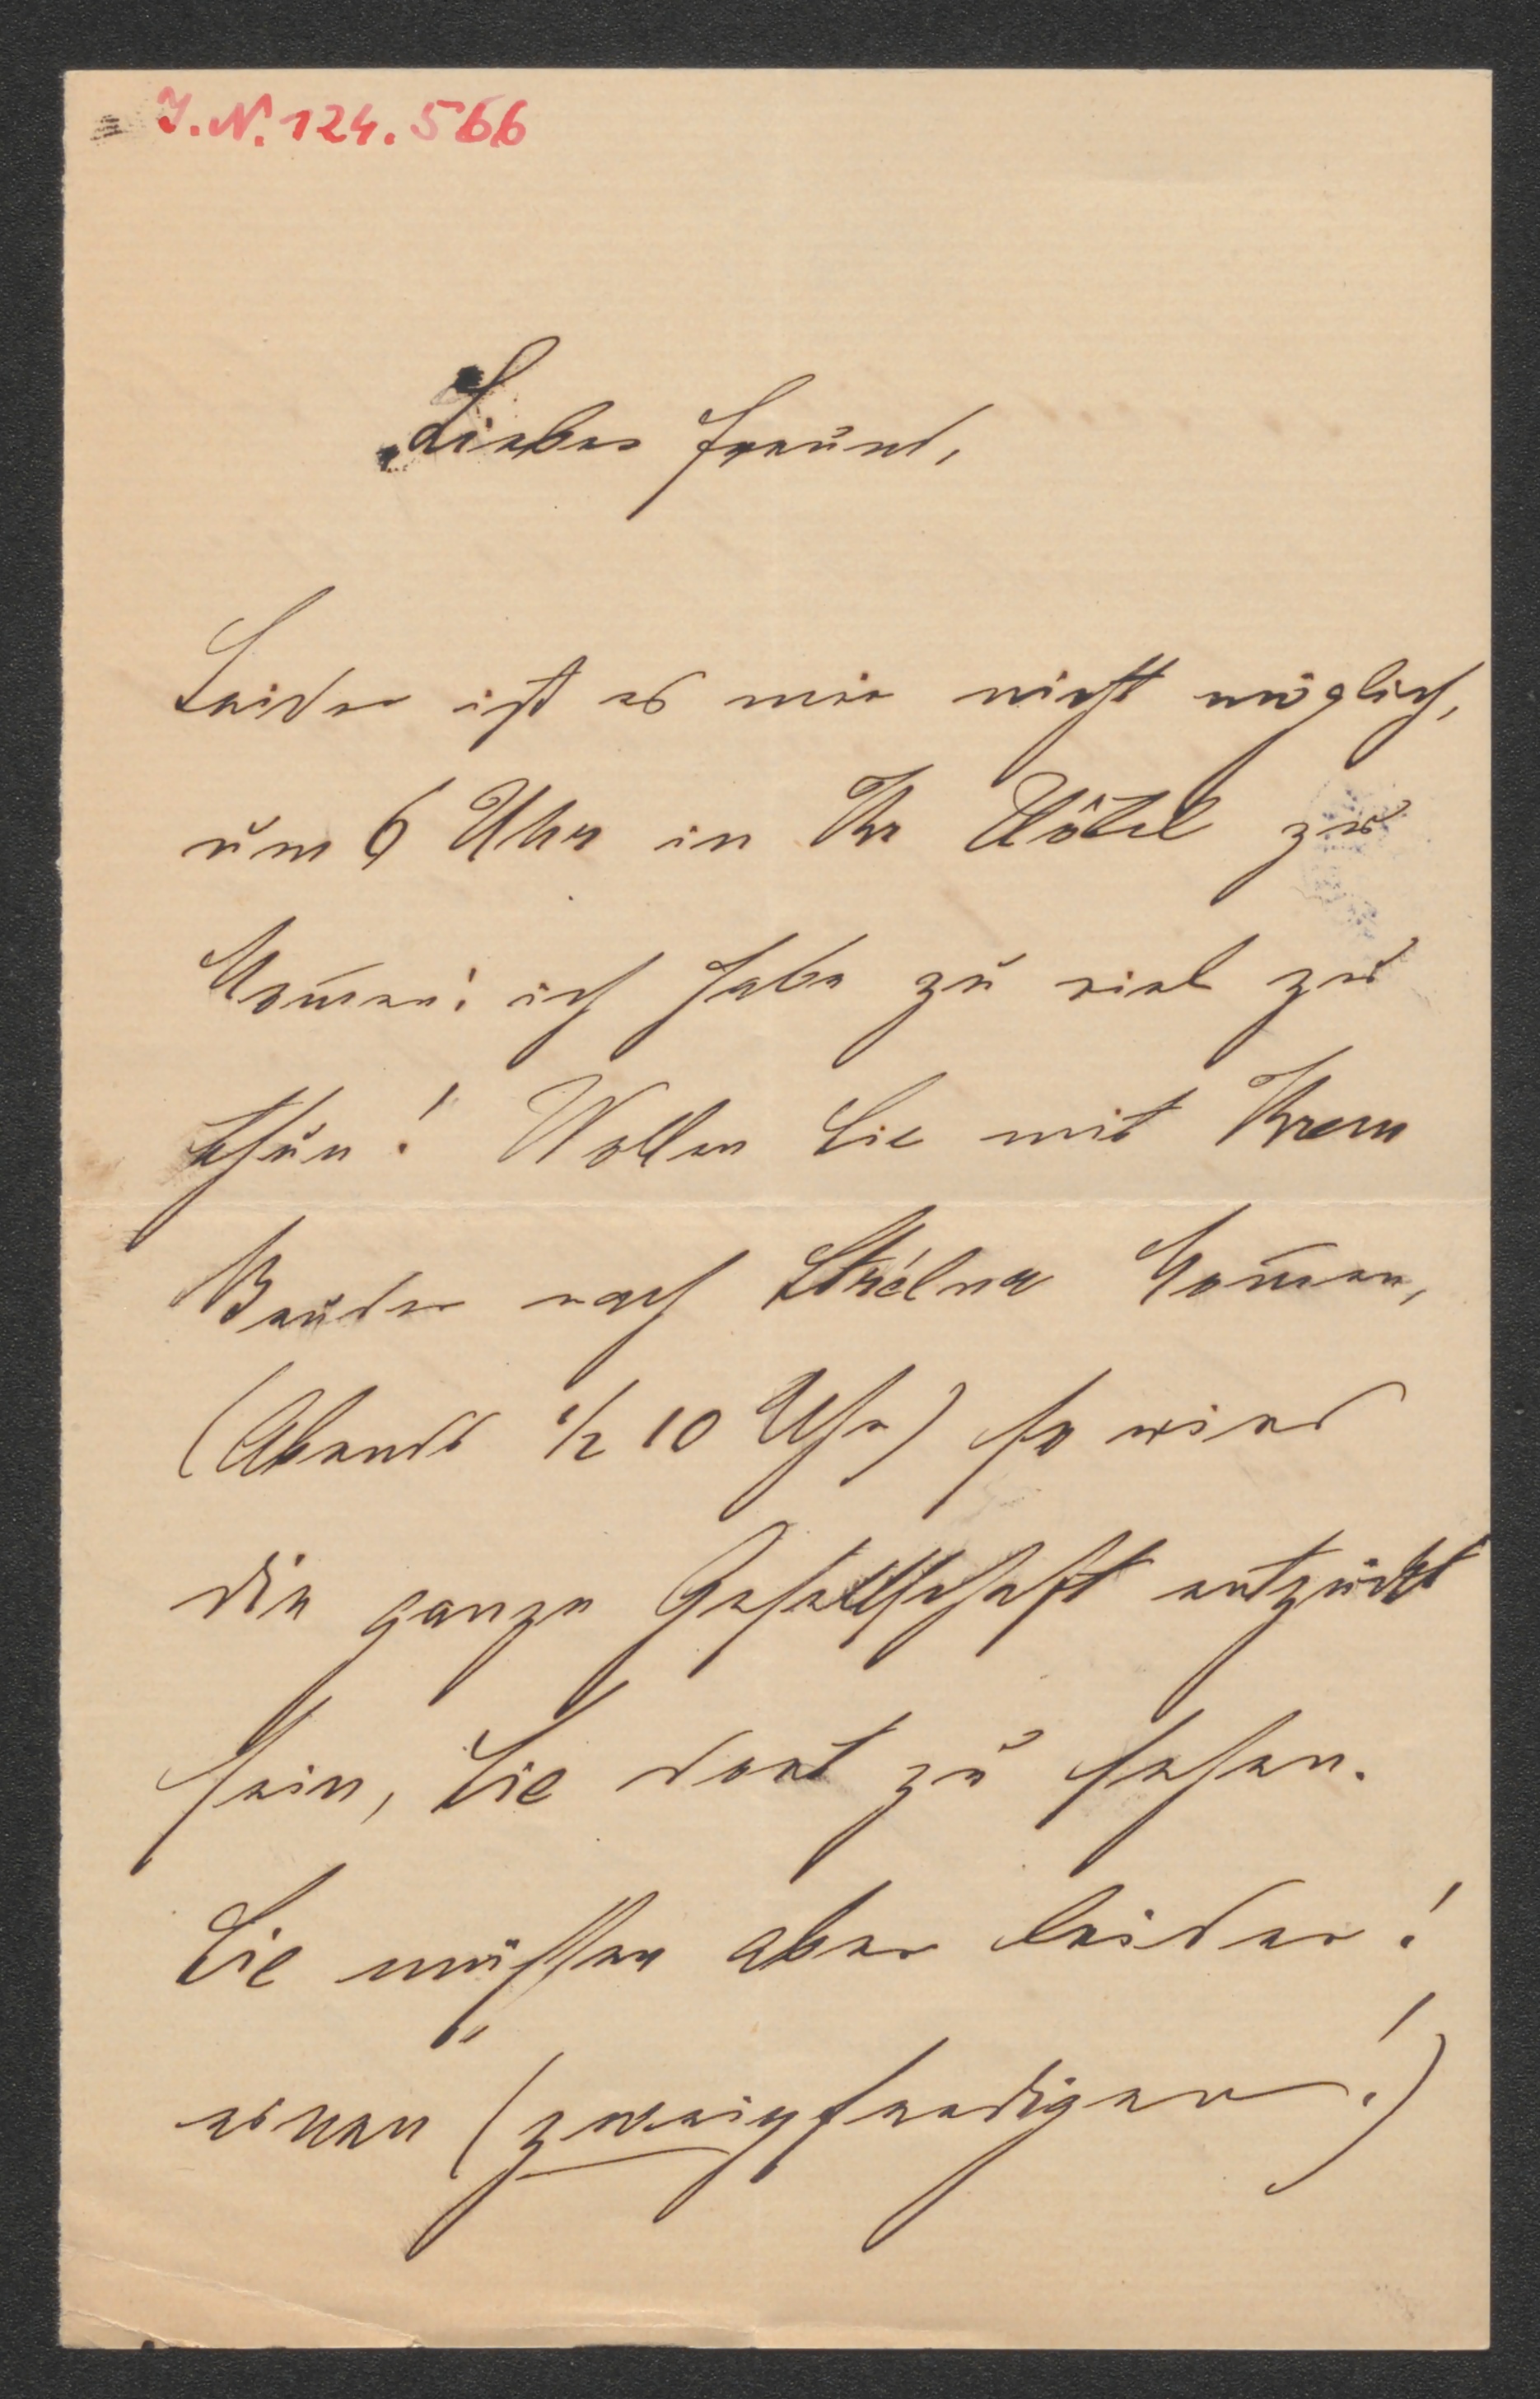 J.N. 124.566
Lieber Freund,
Leider ist es mir nicht möglich,
um 6 Uhr in Ihr Hôtel zu
kom̅en; ich habe zu viel zu
thun! Wollen Sie mit Ihrem
Bruder nach Strélna kom̅en,
(Abends ½ 10 Uhr) so wird
die ganze Gesellschaft entzückt
sein, Sie dort zu sehen.
Sie müssen aber leider!
einen (zweispferdigen!)